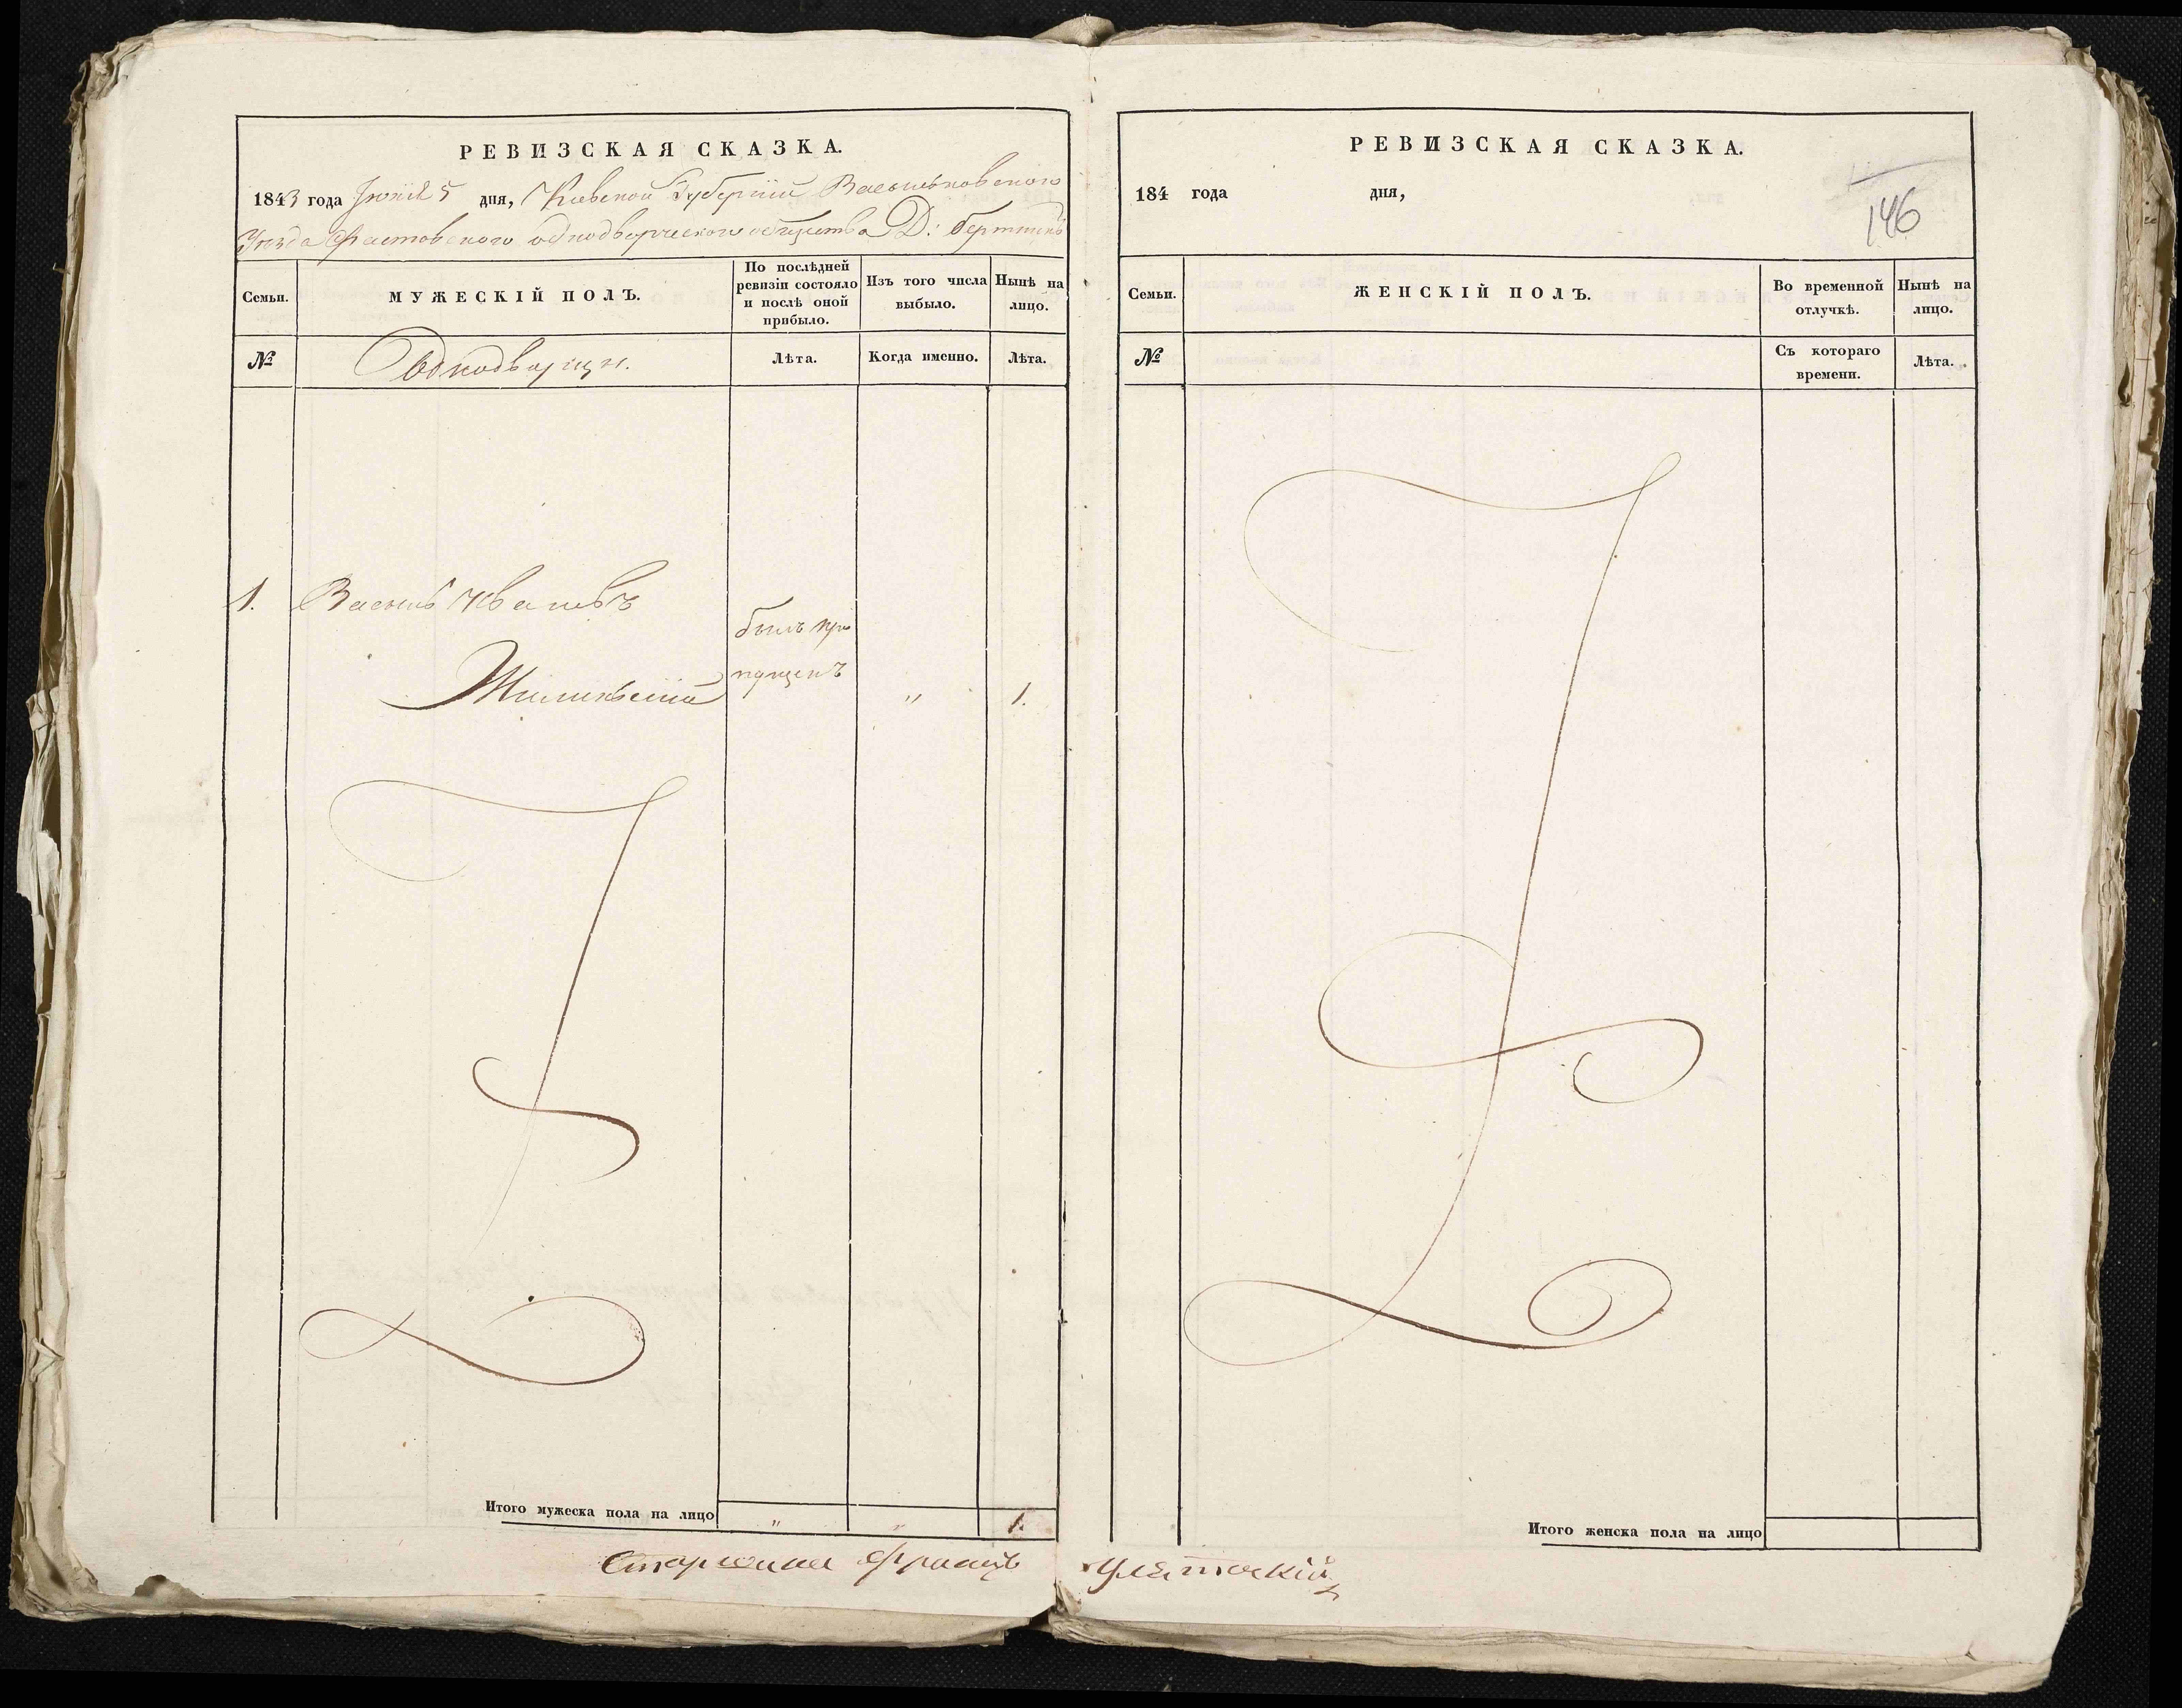 РЕВИЗСКАЯ СКАЗКА.
1843 года Іюня 5 дня, Кіевской Губерніи Васильковского
Уезда Фастовского однодворческого общества Д:
Семьи.
МУЖЕСКІЙ ПОЛЪ.
По послѣдней ревизіи состояло и послѣ оной прибыло.
Изъ того числа выбыло.
Нынѣ на лицо.
№
Однодворцы.
Лѣта.
Когда именно.
Лѣта.
1. Василь Ивановъ
былъ про
пущенъ
" 1.
Итого мужеска пола на лицо " " 1.
Старшина Францъ
РЕВИЗСКАЯ СКАЗКА.
146
184 года дня,
Семьи.
ЖЕНСКІЙ ПОЛЪ.
Во временной отлучкѣ.
Нынѣ на лицо.
№
Съ котораго времени.
Лѣта.
Итого женска пола на лицо